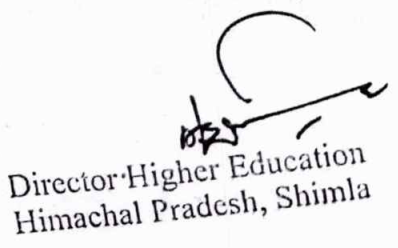 Director·Higher Education
Himachal Pradesh, Shimla